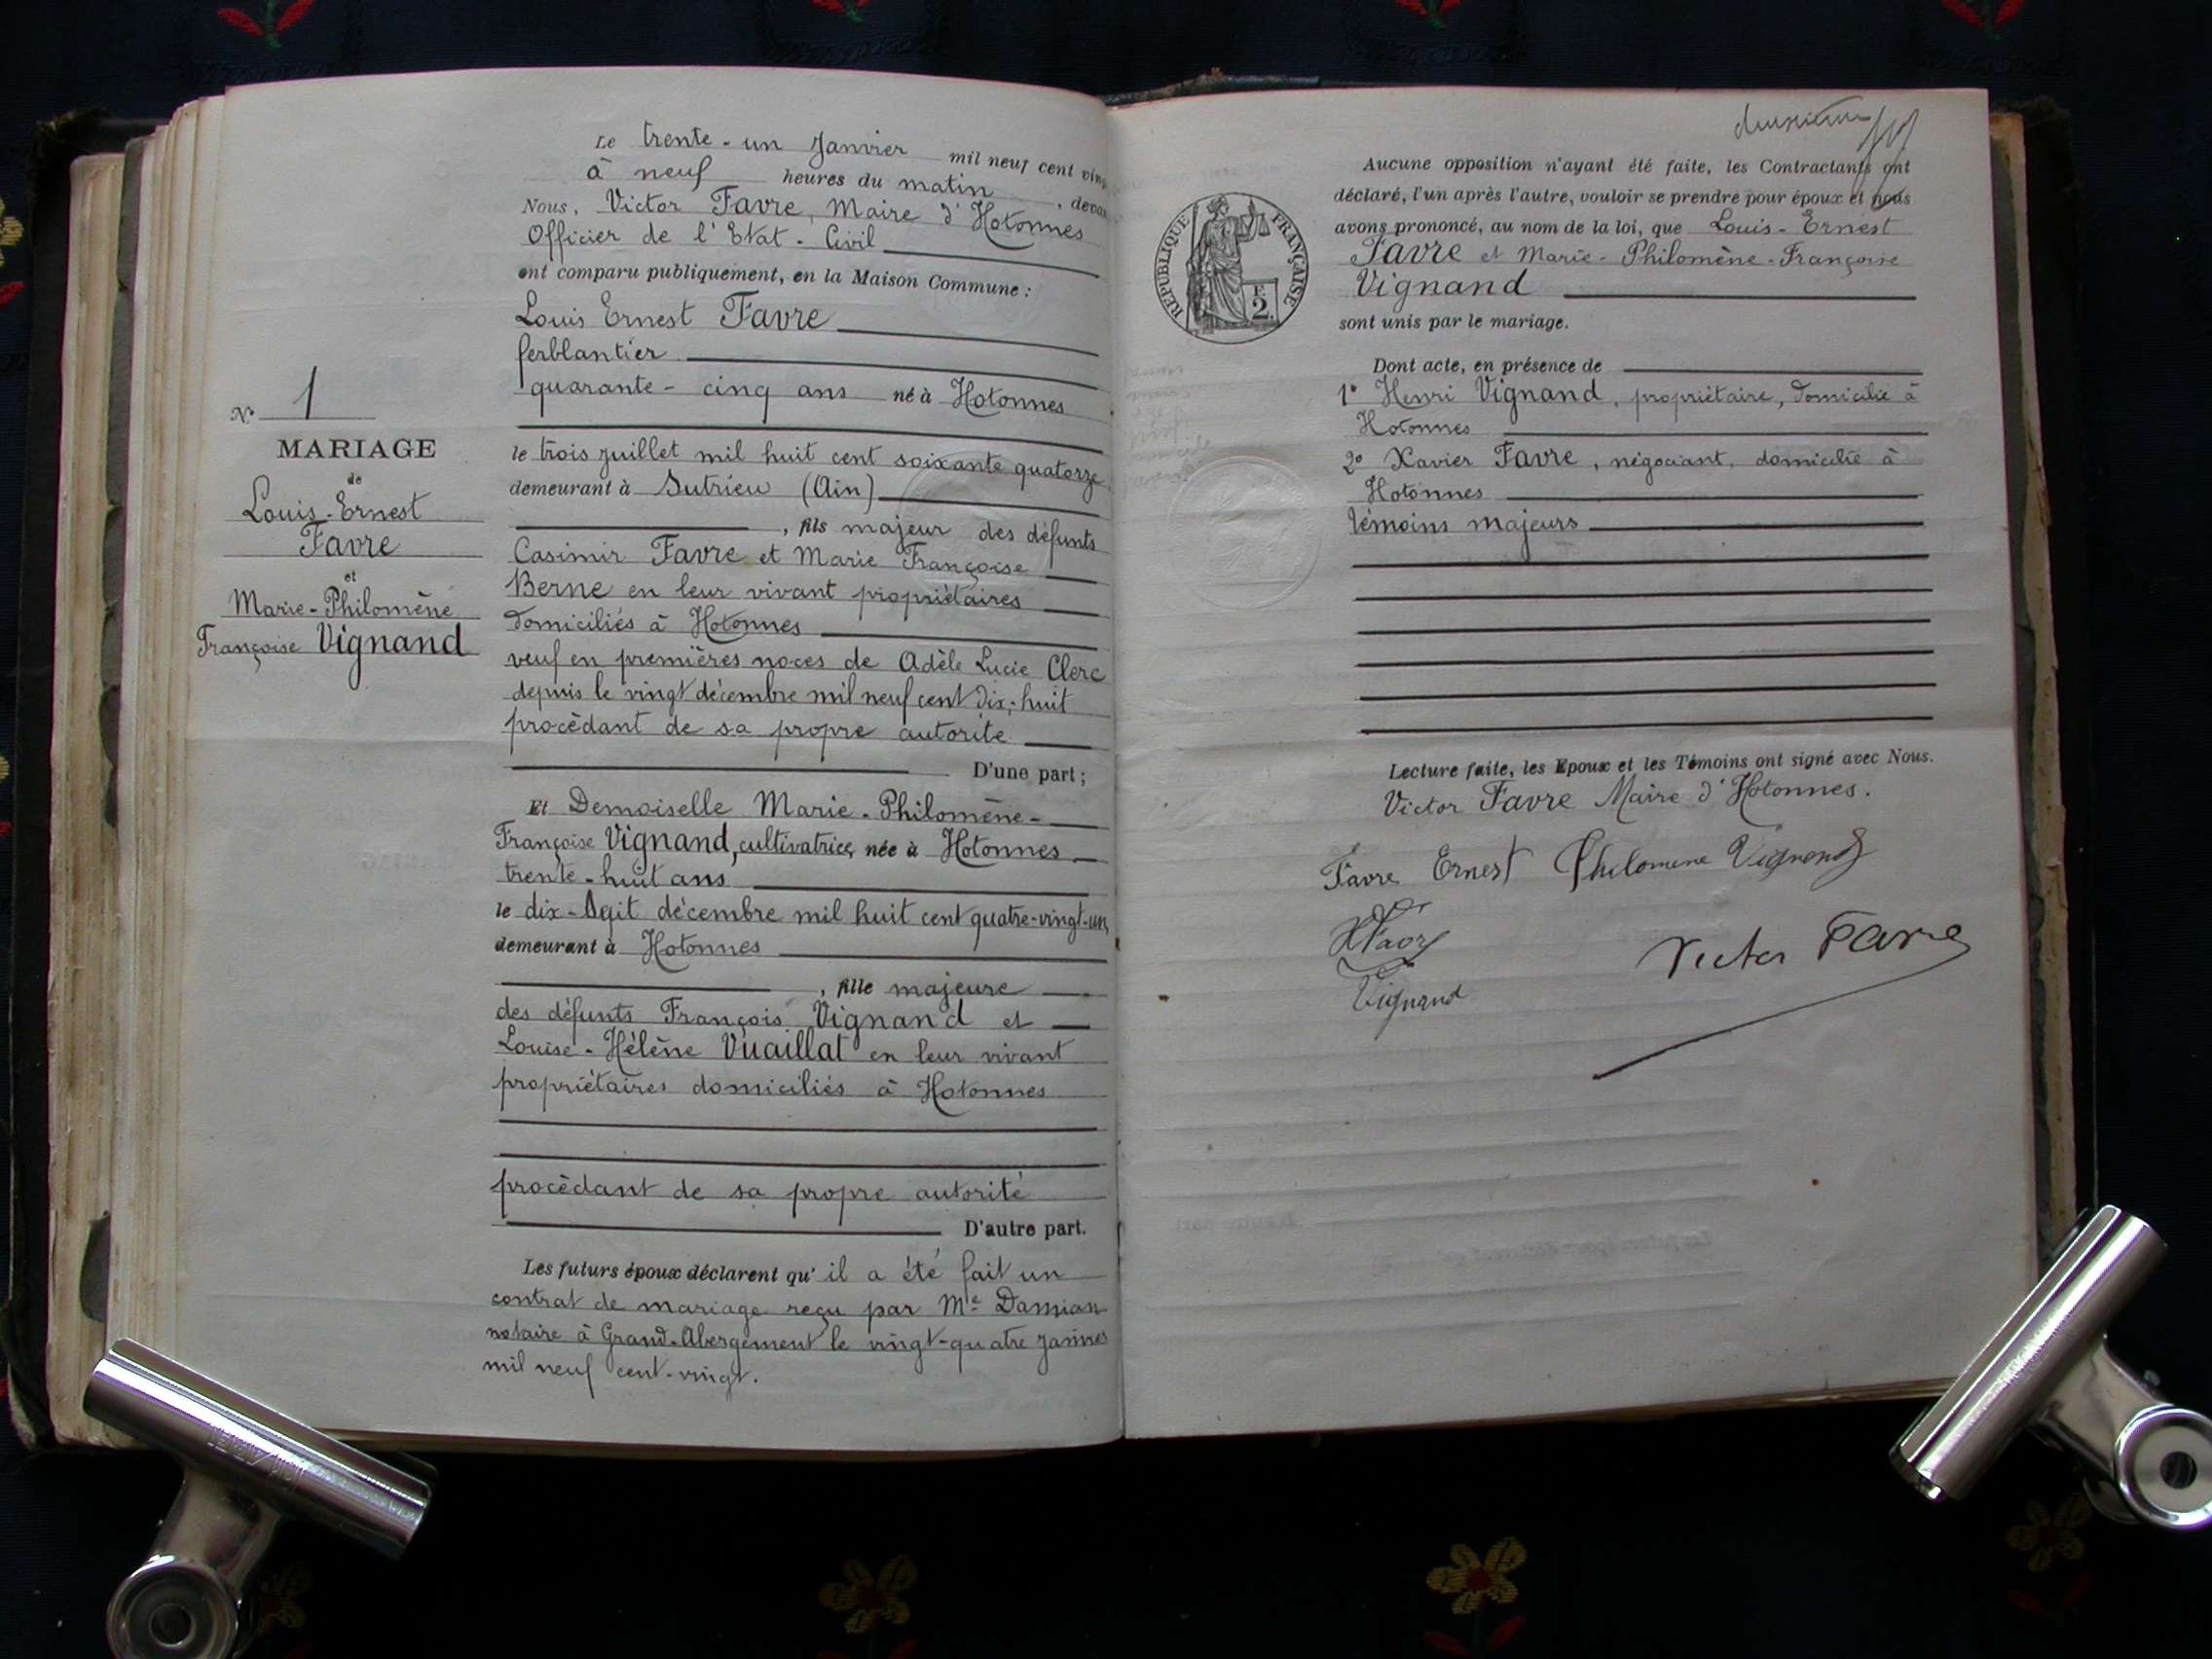 Le trente-un Janvier mil neuf cent vin
à neuf heures du matin, deva
Nous, Victor Favre, Maire d'Hotonnes
Officier de l'Etat-Civil
ont comparu publiquement, en la Maison Commune :
Louis Ernest Favre
ferblantier
quarante-cinq ans né à Hotonnes
le trois juillet mil huit cent soixante quatorze
demeurant à Sutrieu (Ain)
, fils majeur des défunts
Casimir Favre et Marie Françoise
Berne en leur vivant propriétaires
domiciliés à Hotonnes
veuf en premières noces de Adèle Lucie Clerc
depuis le vingt décembre mil neuf cent dix-huit
procédant de sa propre autorité
D'une part ;
Et Demoiselle Marie-Philomène-
Françoise Vignand, cultivatrice, née à Hotonnes
trente-huit ans
le dix-sept décembre mil huit cent quatre-vingt-un
demeurant à Hotonnes
, fille majeure
des défunts François Vignand et
Louise-Hélène Vuaillat en leur vivant
propriétaires domiciliés à Hotonnes
procédant de sa propre autorité
D'autre part.
Les futurs époux déclarent qu'il a été fait un
contrat de mariage reçu par Me Damian
notaire à Grand-Abergement le vingt-quatre janvier
mil neuf cent-vingt.
N° 1
MARIAGE
de
Louis-Ernest
Favre
et
Marie-Philomène
Françoise Vignand
deuxième
RÉPUBLIQUE FRANÇAISE
F.
2
Aucune opposition n'ayant été faite, les Contractants ont
déclaré, l'un après l'autre, vouloir se prendre pour époux et nous
avons prononcé, au nom de la loi, que Louis-Ernest
Favre et Marie-Philomène-Françoise
Vignand
sont unis par le mariage.
Dont acte, en présence de
1° Henri Vignand, propriétaire, domicilié à
Hotonnes
2° Xavier Favre, négociant, domicilié à
Hotonnes
témoins majeurs
Lecture faite, les Epoux et les Témoins ont signé avec Nous.
Victor Favre Maire d'Hotonnes.
Favre Ernest Philomene Vignand
Victor Favre
Vignand